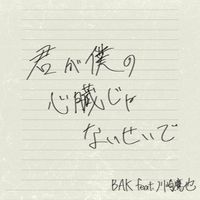 君が僕の
心臓じゃ
ないせいで
BAK feat. 川崎鷹也